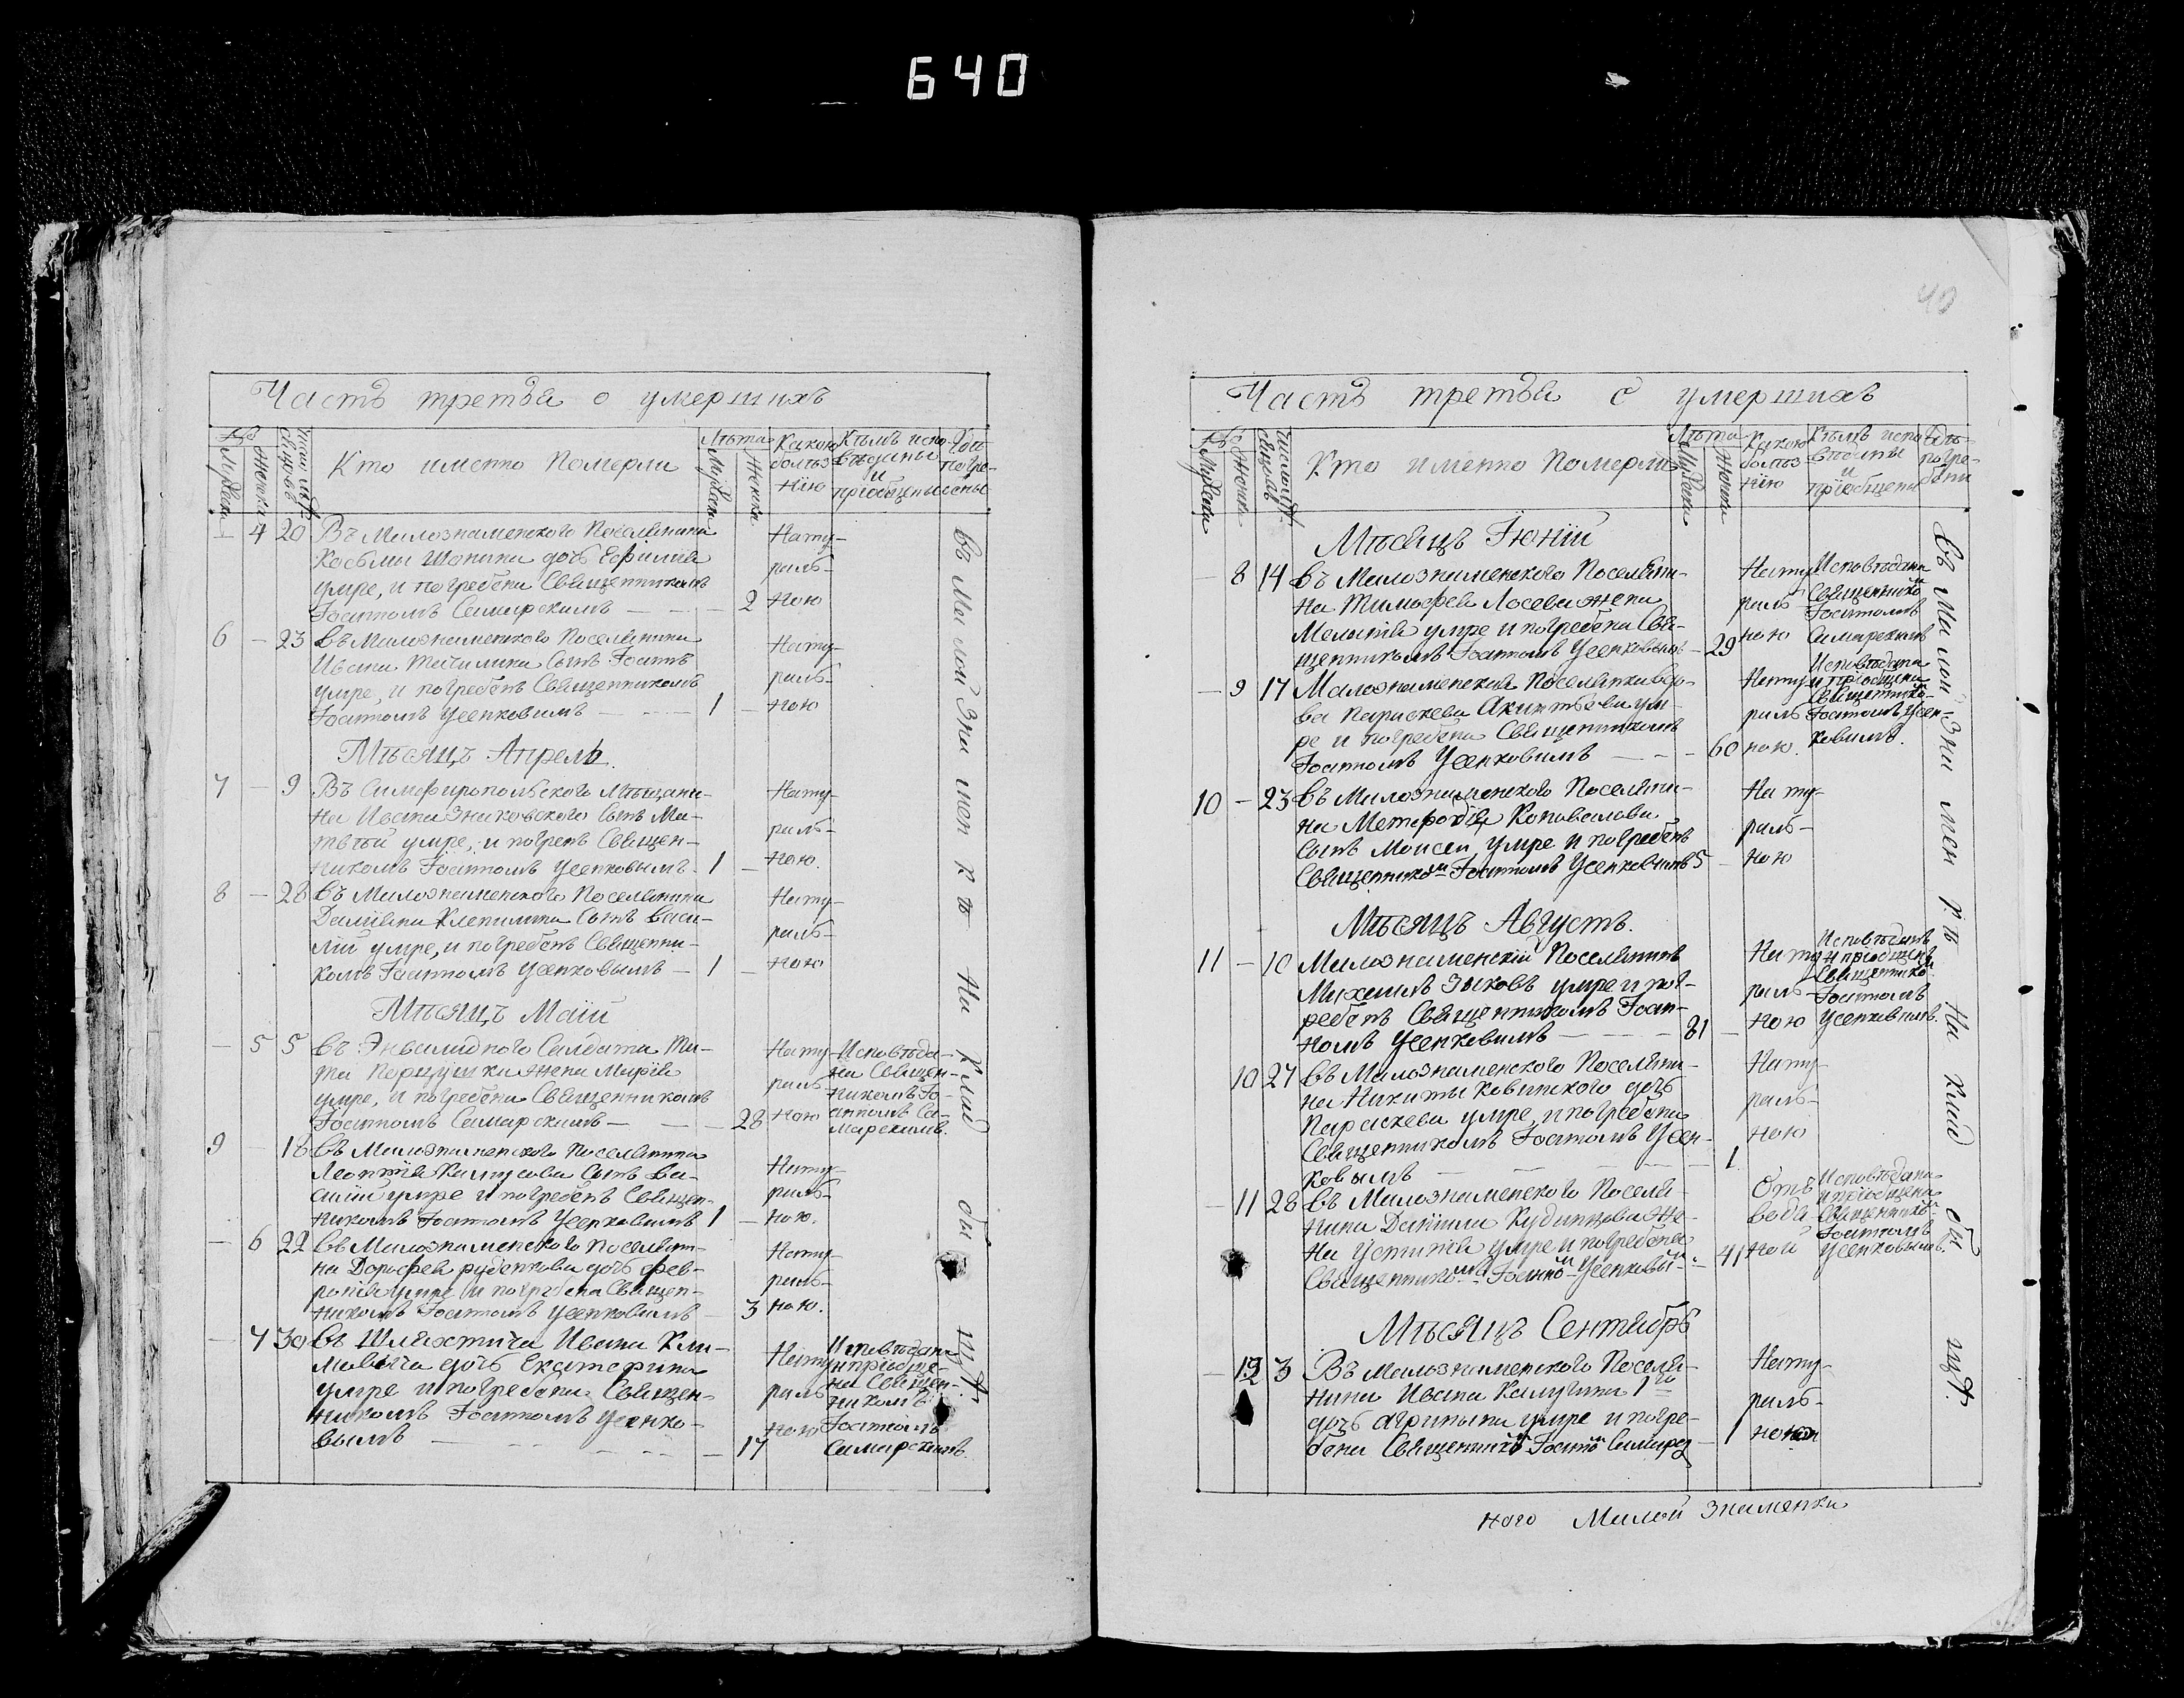 640
Часть третья о умершихъ
№
Мужска
Женска
Число мѣр
свѧцовъ
Кто именно Померли
Лѣта
Мужски
Женски
Какою
болѣз
нїю
Кѣмъ испо
вѣданы
и
прїобщены
Гдѣ
погре
бены
– 4 20 Въ Малознаменского Поселянина
Косьмы Шапина дочь Ефимия
умре, и погребена Священникомъ
Іоанномъ Самарскимъ — — 2
Нату-
раль-
ною
6 – 23 Въ Малознаменского Поселянина
Ивана сынъ Іоаннъ
умре, и погребенъ Священникомъ
Іоанномъ Усенковимъ — — 1 –
Нату-
раль-
ною
Мѣсяцъ Апрель
7 – 9 Въ Симферопольского Мѣщани-
на Ивана Зиковского Сынъ Ма-
твѣй умре, и погренъ Священ-
никомъ Іоанномъ Усенковымъ. 1 –
Нату-
раль-
ною.
8 – 28 Въ Малознаменского Поселянина
Дамїана Клепилина Сынъ Васи-
лїй умре, и погребенъ Священни-
комъ Іоанномъ Усенковымъ — 1 –
Нату-
раль-
ною
Мѣсяцъ Маїй
– 5 5 Въ Энвалидного Салдата Ти-
та Перцушки жена Марїя
умре, и погребена Священникомъ
Іоанномъ Самарскимъ — — 28
Нату-
раль-
ною
Исповѣда-
на Священ-
никомъ Іо-
анномъ Са-
марскимъ.
9 – 18 Въ Малознаменского Поселянина
Леонтїя Сынъ Ва-
силїй умре и погребенъ Священ-
никомъ Іоанномъ Усенковимъ 1 –
Нату-
раль-
ною.
– 6 22 Въ Малознаменского Поселяни-
на Дорофея Руденкова дочь Фев-
ронїя умре и погребена Священ-
никомъ Іоанномъ Усенковимъ – 3
Нату-
раль-
ною.
– 7 30 Въ Шляхтича Ивана Кли-
мовича дочь Екатерина
умре и погребена Священ-
никомъ Іоанномъ Усенко-
вымъ — — — 17
Нату-
раль-
ною
Исповѣдана
и прїобще-
на Священ-
никомъ
Іоанномъ
Самарскимъ.
Въ Ма лой Зна мен к ѣ На клад би щѣ.
40
Часть третья о умершихъ
№
Мужски
Женски
Кто именно Померли
Лѣта
Мужески
Женски
Какою
болѣз
нїю
Кѣмъ испо
вѣданы
и
прїобщены
Гдѣ
погре-
бены
Мѣсяцъ Іюнїй
8 14 Въ Малознаменского Поселяни-
на Тимофея Лосева жена
Меланїя умре и погребена Свя-
щенникомъ Іоанномъ Усенковимъ – 29
Нату
раль
ною
Исповѣдана
Священнико
Іоанномъ
Самарскимъ
– 9 17 Малознаменская Поселянка вдо-
ва Параскева Акинтьева ум-
ре и погребена Священникомъ
Іоанномъ Усенковимъ — — 60
Нату
раль
ною.
Исповѣдана
и прїобщена
Священнико-
Іоанномъ Усен-
ковимъ.
10 – 23 Въ Малознаменского Поселяни-
на Метафодїя Коновалова
Сынъ Моисей умре и погребенъ
Священникомъ Іоанномъ Усенковимъ 5 –
На ту-
раль-
ною
Мѣсяцъ Августъ.
11 – 10 Малознаменскїй Поселянинъ
Михаилъ Зыковъ умре и пог-
ребенъ Священникомъ Іоан-
номъ Усенковимъ — — 81 –
Нату
раль-
ною
Исповѣданъ
и прїобщенъ
Священнико
Іоанномъ
Усенковимъ.
10 27 Въ Малознаменского Поселяни-
на Никиты Ковинского дочь
Параскева умре, и погребена
Священникомъ Іоанномъ Усен-
ковымъ — — — 1
Нату-
раль-
ною
– 11 28 Въ Малознаменского Поселя-
нина Данїила Кудинцова Же-
на Устинїя умре и погребена
Священникомъ Іоанно Усенковы – 41
Отъ
водя
ной
Исповѣдана
и прїобщена
Священнико
Іоанномъ
Усенковымъ.
Мѣсяцъ Сентябрь
– 12 3 Въ Малознаменского Поселя-
нина Ивана Калугина 1го
дочь Агрипына умре и погре-
бена Священник Іоанно Самарс – 1
Нату-
раль-
ною
Въ Ма лой Зна мен к ѣ На клад би щѣ.
ного Малой Знаменки